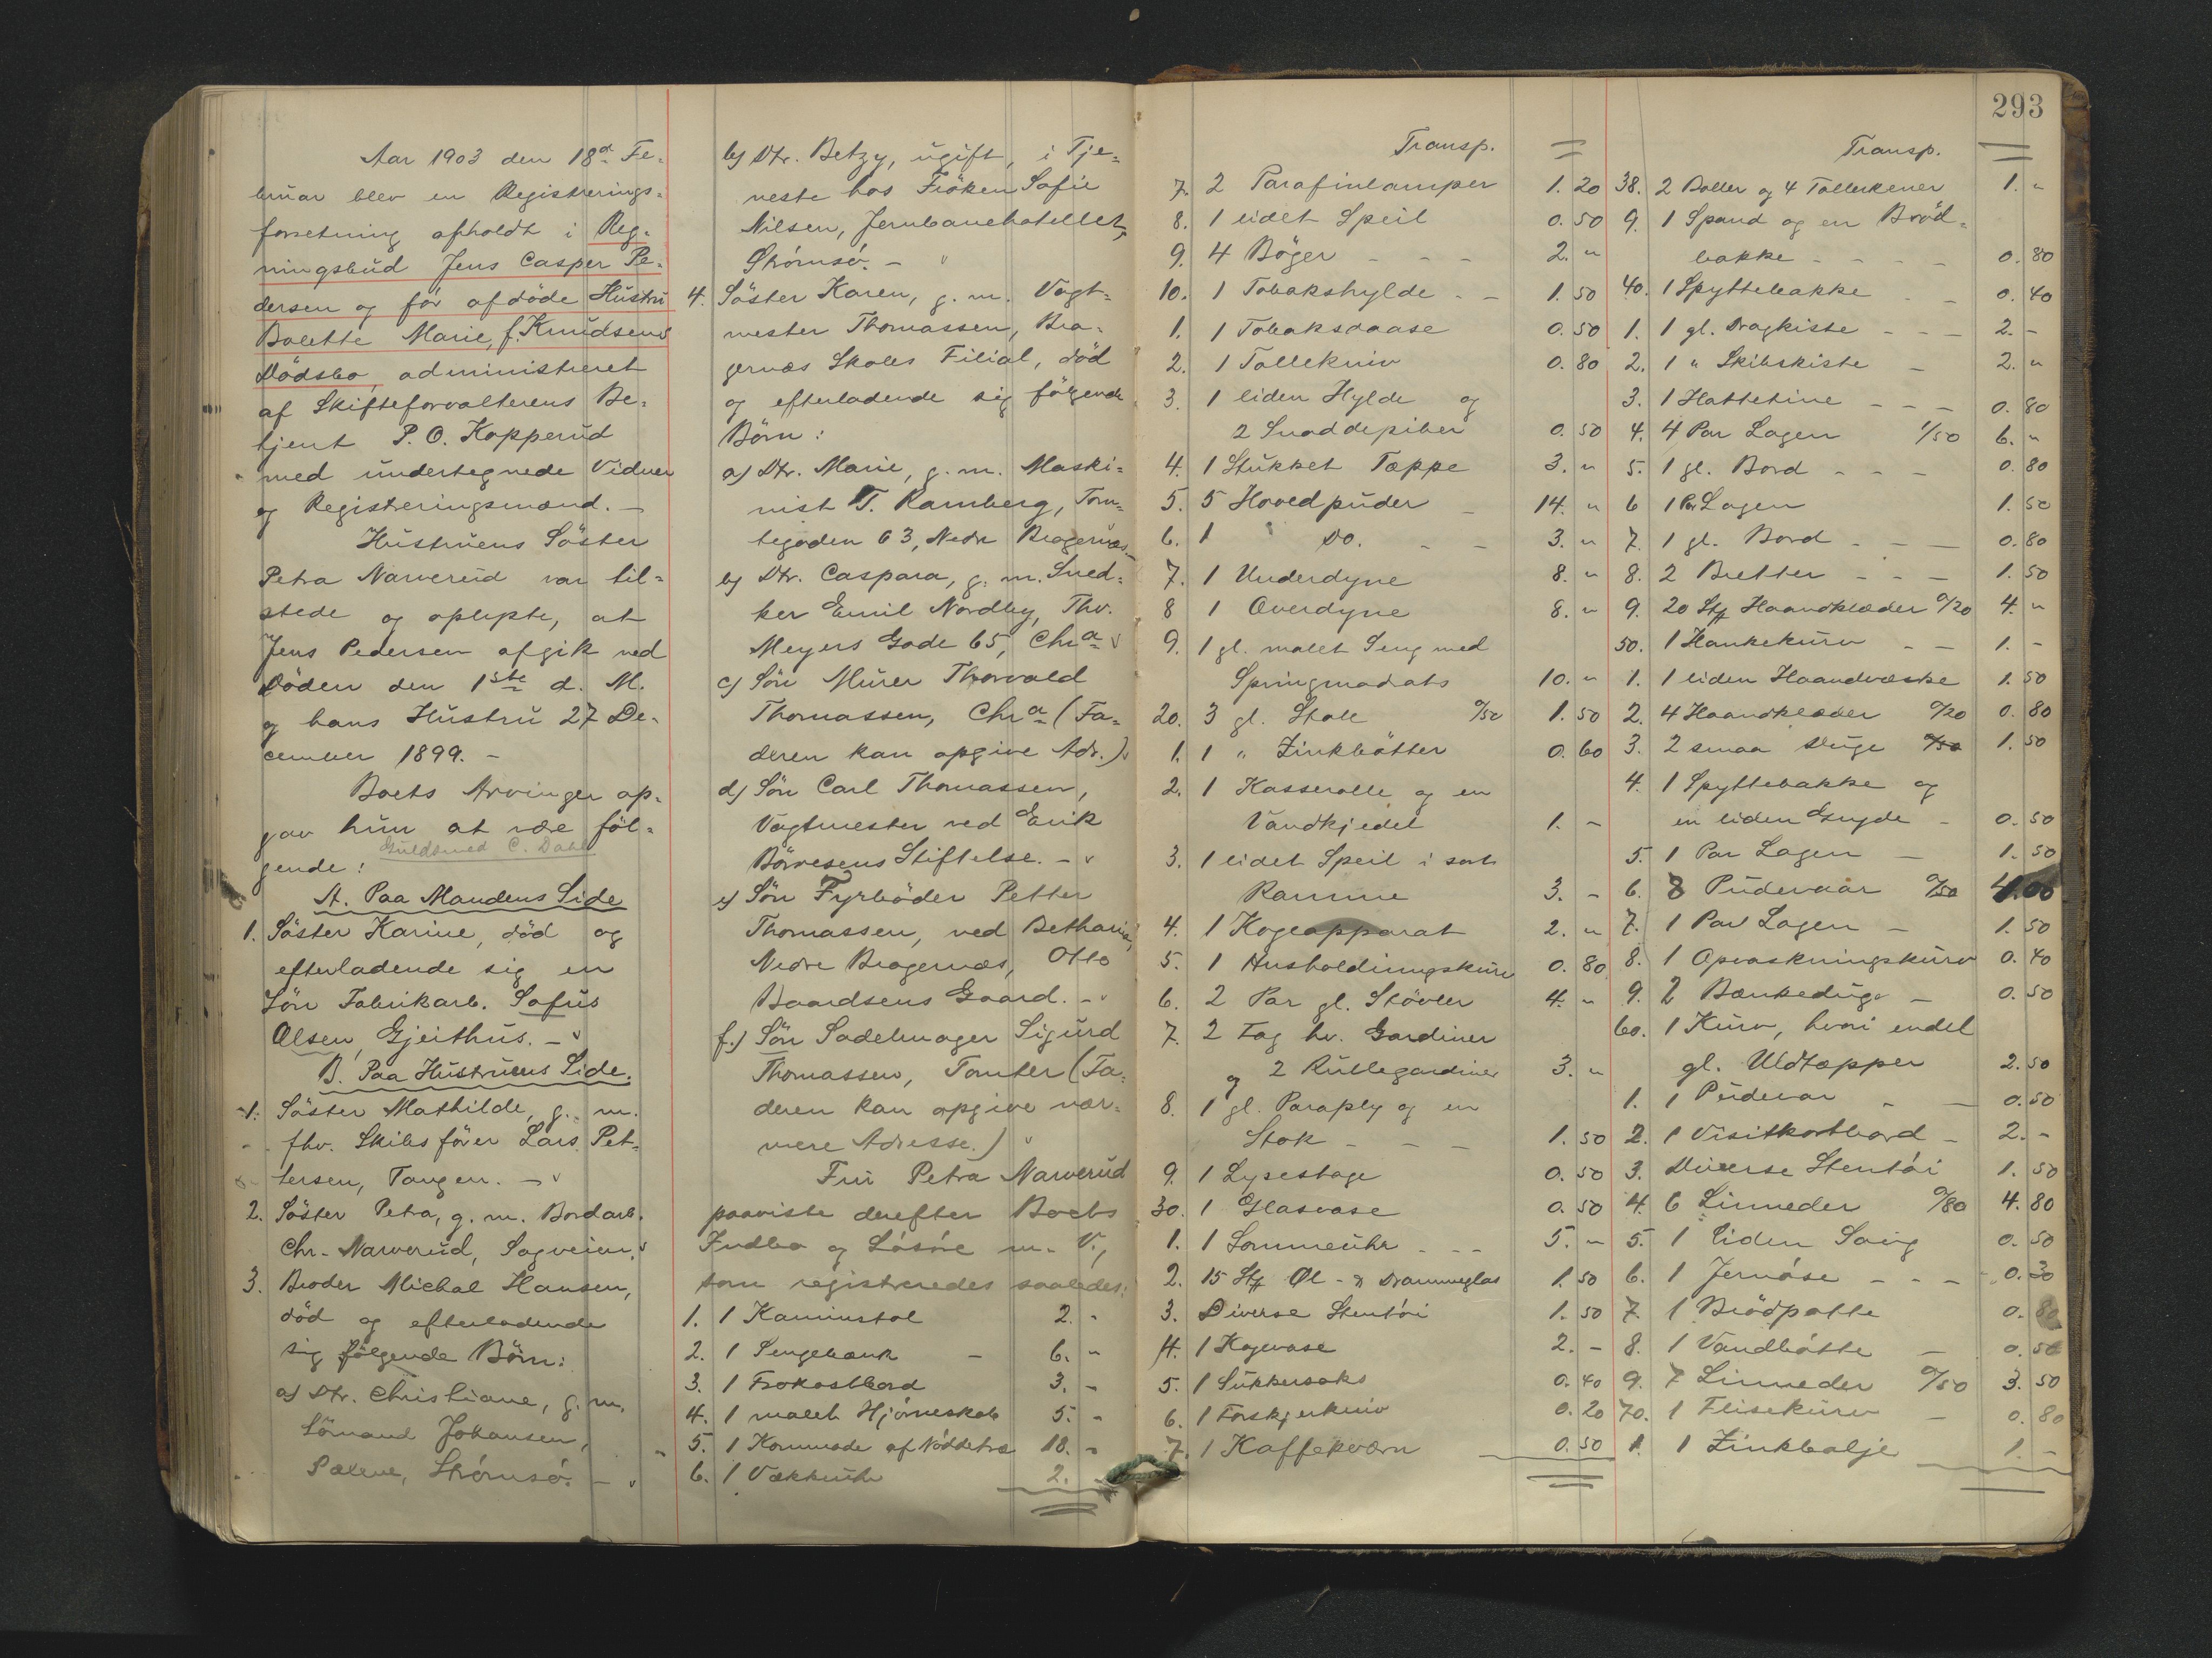 Aar 1903 den 18de Fe-
bruar blev en Registrerings-
forretning afholdt i Reg-
ningsbud Jens Casper Pe-
dersen og før afdøde Hustru
Bolette Marie, f. Knudsens
Dødsbo, administreret
af Skifteforvalterens Be-
tjent P. O. Kopperud
med undertegnede Vidner
og Registreringsmænd. —
Hustruens Søster
Petra Narverud var til-
stede og oplyste, at
Jens Pedersen afgik ved
Døden den 1ste d. M.
og hans Hustru 27 De-
cember 1899. -
Boets Arvinger op-
gav hun at være føl-
gende:
Guldsmed C. Dahl
A. Paa Mandens Side
1. Søster Karine, død og
efterladende sig en
Søn Fabrikarb. Sofus
Olsen, Gjeithus. -
B. Paa Hustruens Side.
1. Søster Mathilde, g. m.
fhv. Skibsfører Lars Pet-
tersen, Tangen. -
2. Søster Petra, g. m. Bordarb.
Chr. Narverud, Sagveien.
3. Broder Michal Hansen,
død og efterladende
sig følgende Børn:
a) Dtr. Christiane, g. m.
Sømand Johansen,
Strømsø. -
b) Dtr. Betzy, ugift, i Tje-
neste hos Frøken Sofie
Nilsen, Jernbanehotellet,
Strømsø. -
4. Søster Karen, g. m. Vagt-
mester Thomassen, Bra-
gernæs Skoles Filial, død
og efterladende sig følgende
Børn:
a) Dtr. Marie, g. m. Maski-
nist T. Ramberg, Tom-
tegaden 63, Nedre Bragernæs.
b) Dtr. Caspara, g. m. Sned-
ker Emil Nordby, Thv.
Meyers Gade 65, Chra
c) Søn Murer Thorvald
Thomassen, Chra (Fa-
deren kan opgive Adr.)
d) Søn Carl Thomassen,
Vagtmester ved Erik
Børresens Stiftelse. -
e) Søn Fyrbøder Petter
Thomassen, ved Bethania,
Nedre Bragernæs, Otto
Baardsens Gaard. -
f.) Søn Sadelmager Sigurd
Thomassen, Tomter (Fa-
deren kan opgive nær-
mere Adresse.)
Fru Petra Narverud
paaviste derefter Boets
Indbo og Løsøre m. V.,
som registreredes saaledes:
1. 1 Kaminstol 2. -
2. 1 Sengebænk - 6. "
3. 1 Frokostbord 3. -
4. 1 malet Hjørneskab 5. -
5. 1 Kommode af Nøddetræ 18. -
6. 1 Vækkeuhr 2. -
Transp. =
7. 2 Parafinlamper 1. 20
8. 1 lidet Speil 0. 50
9. 4 Bøger - - - 2. "
10. 1 Tobakshylde - - 1. 50
1. 1 Tobaksdaase 0. 50
2. 1 Tollekniv 0. 80
3. 1 liden Hylde og
2 Snaddepiber 0. 50
4. 1 Stukket Tæppe 3. "
5. 5 Hovedpuder - 14. "
6. 1 Do. - - 3. "
7. 1 Underdyne 8. "
8 1 Overdyne 8. "
9. 1 gl. malet Seng med
Springmadrats 10. "
20. 3 gl. Stole 0/50 1. 50
1. 1 " Zinkbøtter 0. 60
2. 1 Kasserolle og en
Vandkjedel 1. -
3. 1 lidet Speil i sort
Ramme 3. -
4. 1 Kogeapparat 2. "
5. 1 Husholdningskurv 0. 80
6. 2 Par gl. Støvler 4. "
7. 2 Fag hv. Gardiner
og 2 Rullegardiner 3. "
8. 1 gl. Paraply og en
Stok - - - 1. 50
9. 1 Lysestage 0. 50
30. 1 Glasvase 0. 50
1. 1 Lommeuhr - - - 5. "
2. 15 Stk Øl- & Dramneglas 1. 50
3. Diverse Stentøi 1. 50
4. 1 Kagevase 2. -
5. 1 Sukkersaks 0. 40
6. 1 Forskjærkniv 0. 20
7. 1 Kaffekværn 0. 50
293
Transp. =
38. 2 Boller og 4 Tallerkener 1. "
9. 1 Spand og en Brød-
bakke - - - - 0. 80
40. 1 Spyttebakke - - 0. 40
1. 1 gl. Dragkiste - - - 2. -
2. 1 " Skibskiste - 2. "
3. 1 Hattetine - - - 0. 80
4. 4 Par Lagen 1/50 6. "
5. 1 gl. Bord - - - 0. 80
6 1 Par Lagen 1. 50
7. 1 gl. Bord - - - 0. 80
8. 2 Bretter - - - 1. 50
9. 20 Stk Haandklæder 0/20 4. "
50. 1 Hankekurv - - 1. -
1. 1 liden Haandvæske 1. 50
2. 4 Haandklæder 0/20 0. 80
3. 2 smaa Duge 0/50 1. 50
4. 1 Spyttebakke og
en liden Gryde - 0. 50
5. 1 Par Lagen - 1. 50
6. 8 Pudevaar 0/50 4. 00
7. 1 Par Lagen - 1. 50
8. 1 Opvaskningskurv 0. 40
9. 2 Bænkeduge - 0. 50
60. 1 Kurv, hvori endel
gl. Uldtæpper 2. 50
1. 1 Pudevar - - 0. 50
2. 1 Visitkortbord - 2. -
3. Diverse Stentøi 1. 50
4. 6 Linneder 0/80 4. 80
5. 1 liden Saug 0. 50
6. 1 Jernøse - - - 0. 30
7. 1 Brødpotte 0. 80
8. 1 Vandbøtte - 0. 50
9. 7 Linneder 0/50 3. 50
70. 1 Flisekurv - 0. 80
1. 1 Zinkbalje 1. -